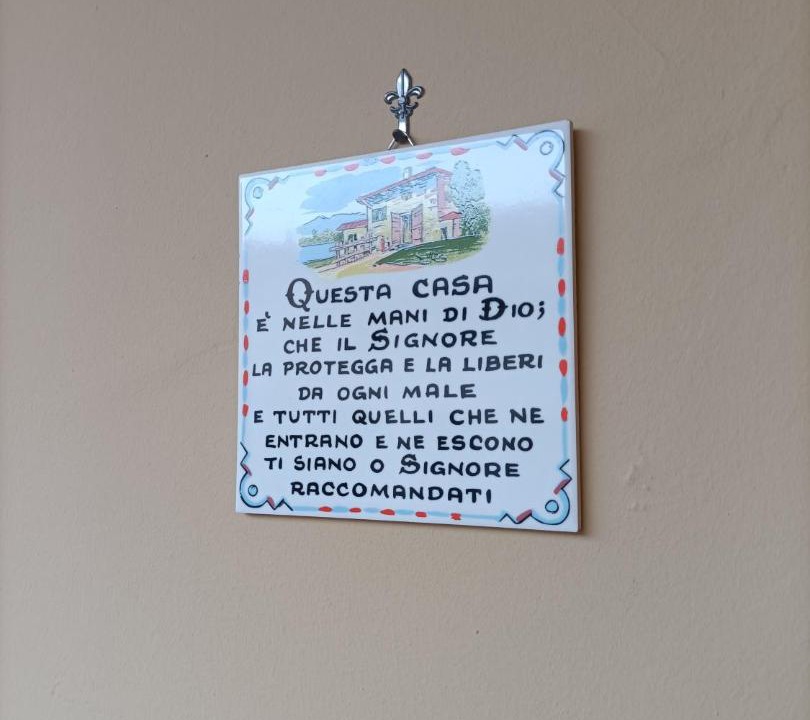 QUESTA CASA
E' NELLE MANI DI DIO;
CHE IL SIGNORE
LA PROTEGGA E LA LIBERI
DA OGNI MALE
E TUTTI QUELLI CHE NE
ENTRANO E NE ESCONO
TI SIANO O SIGNORE
RACCOMANDATI